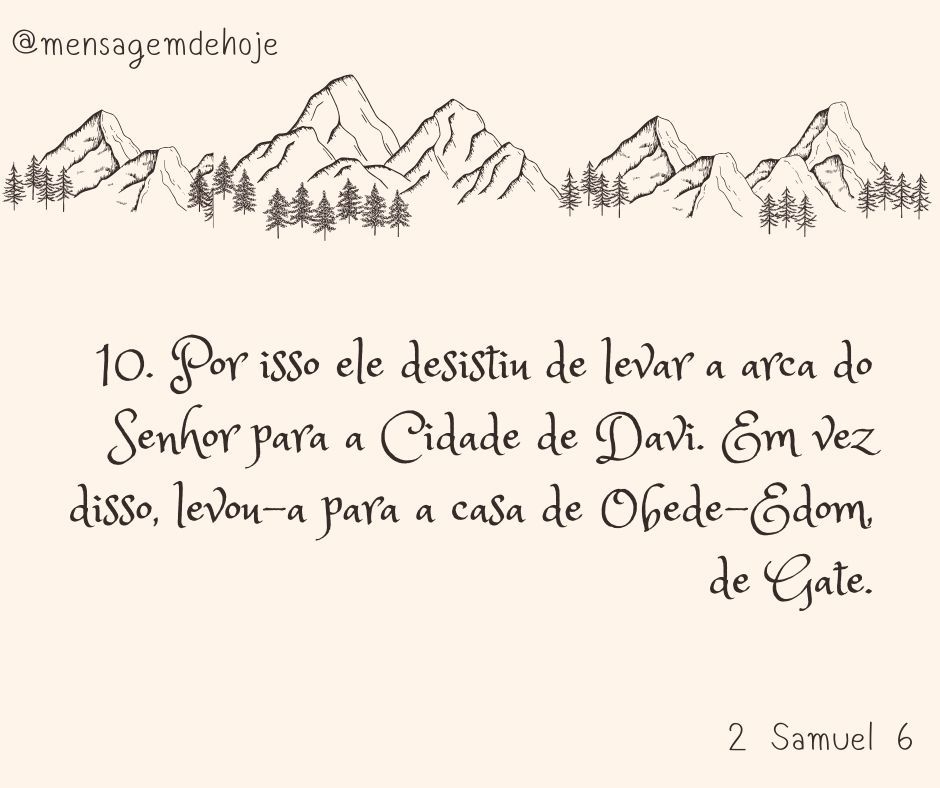 @mensagemdehoje
10. Por isso ele desistiu de levar a arca do
Senhor para a Cidade de Davi. Em vez
disso, levou-a para a casa de Obede-Edom,
de Gate.
2 Samuel 6